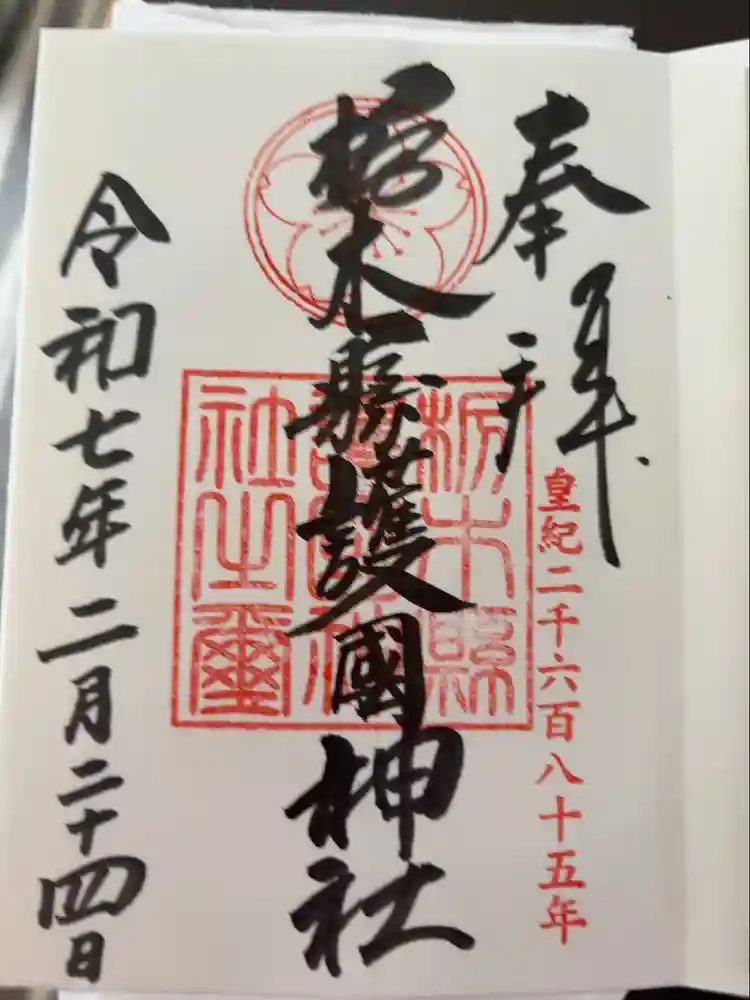 奉拝
皇紀二千六百八十五年
栃木縣護國神社
栃木縣護國神社之璽
令和七年二月二十四日